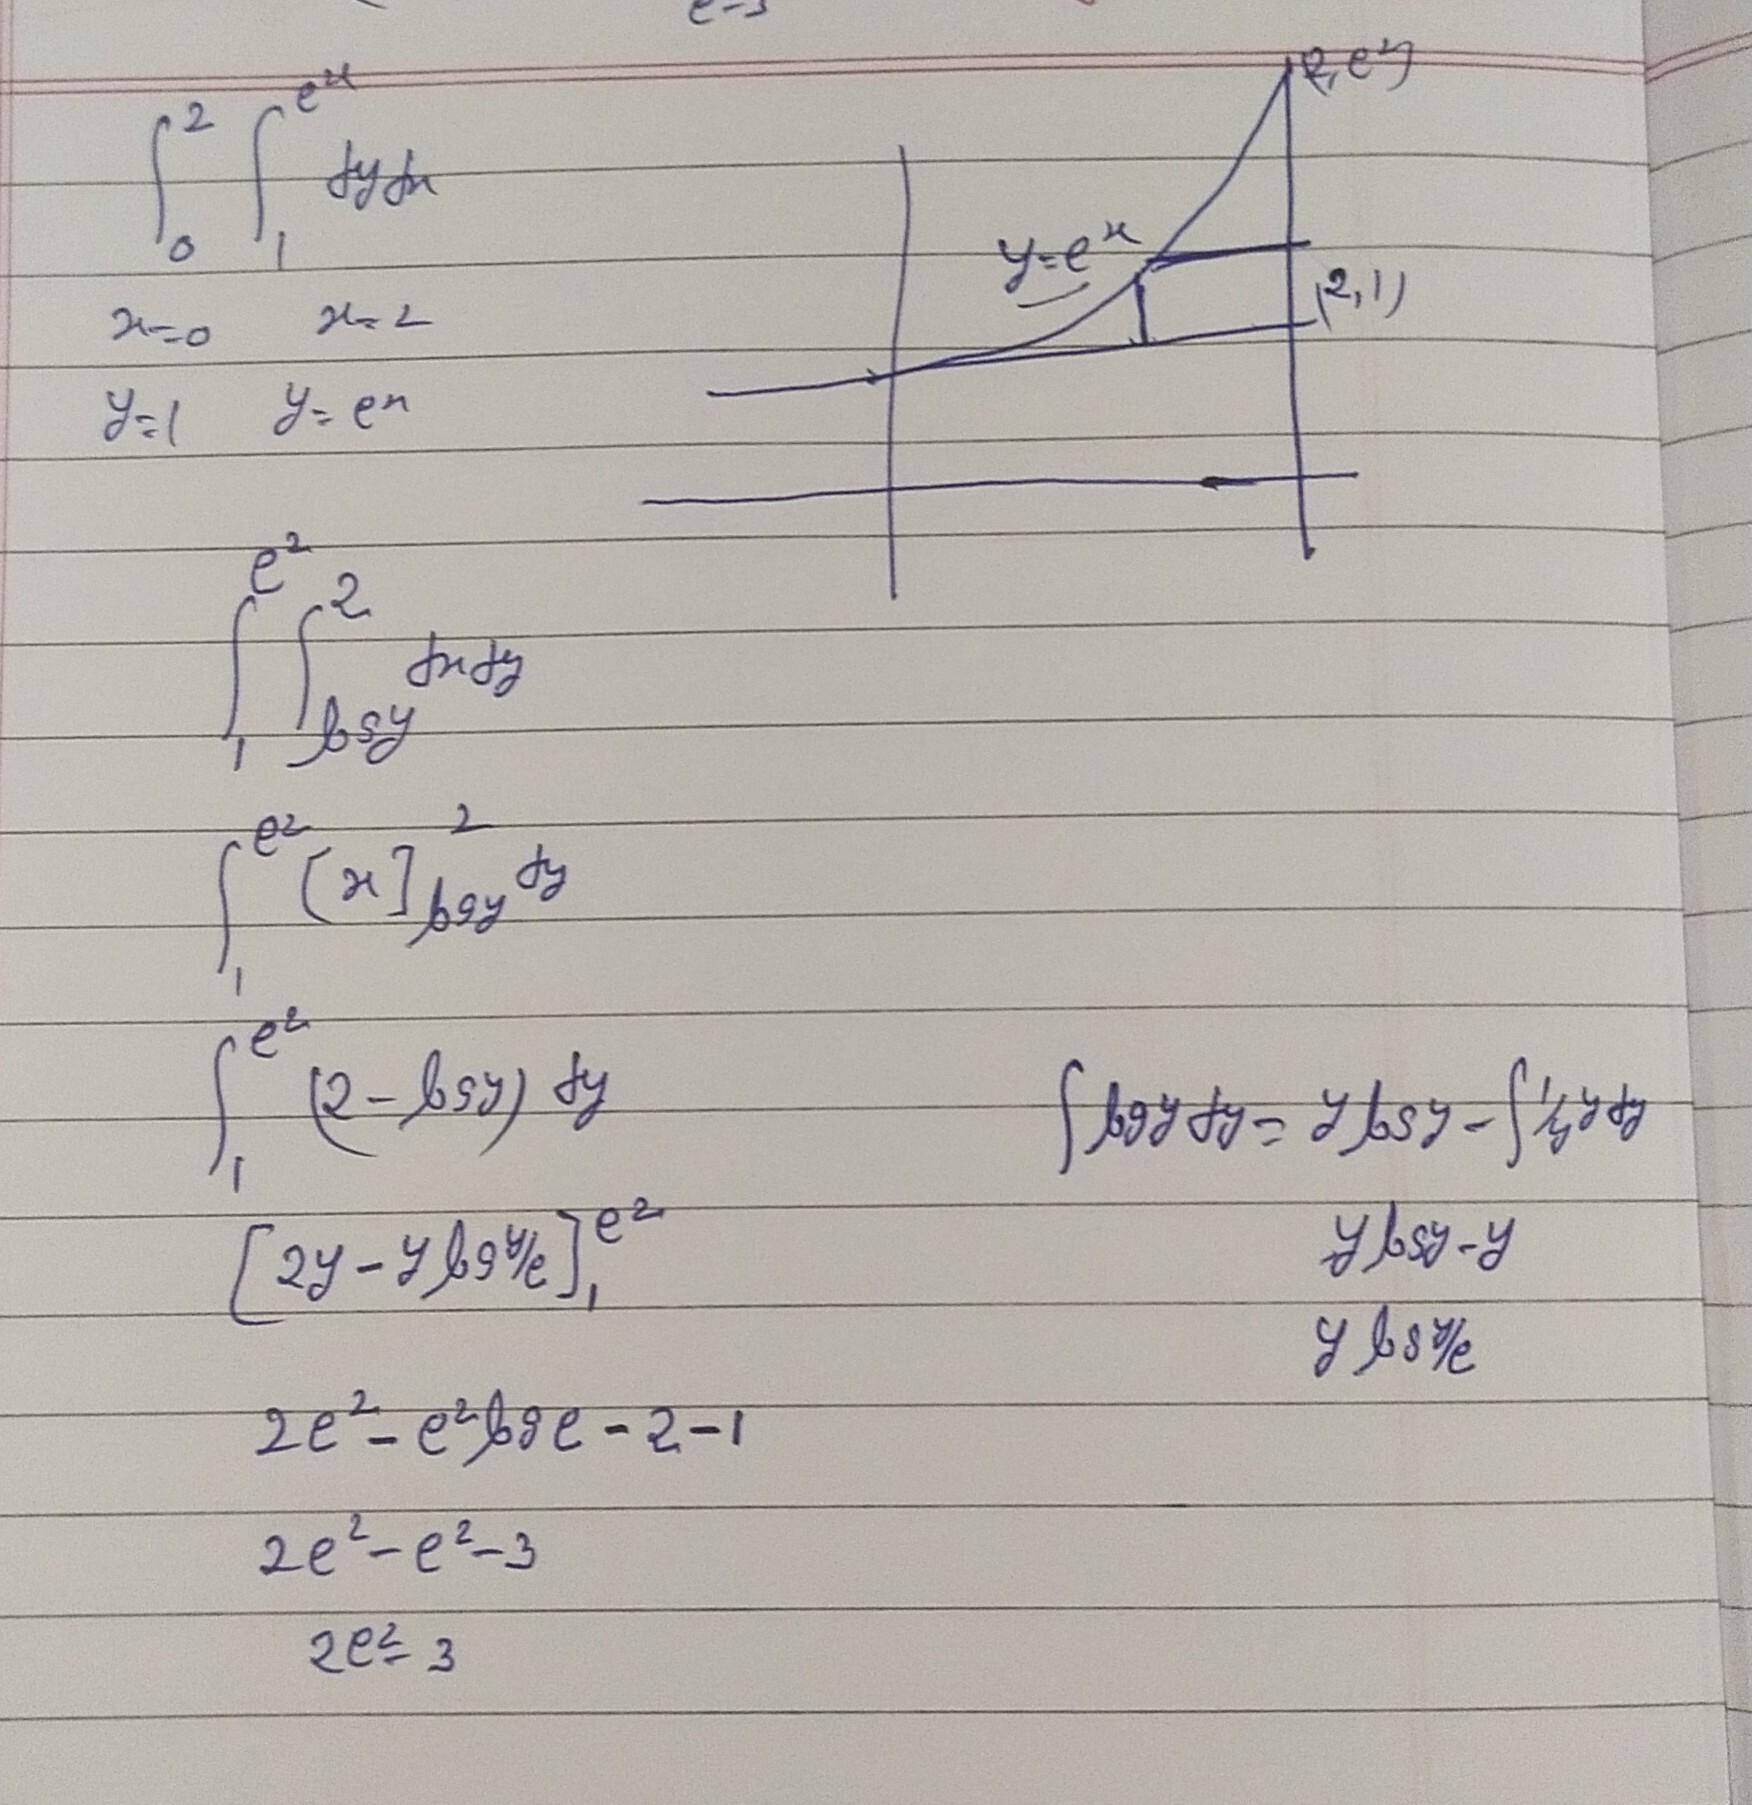 e-3
∫₀² ∫₁^{e^x} dy dx
x=0 x=2
y=1 y=e^x
(2, e²)
y=e^x
(2,1)
∫₁^{e²} ∫_{log y}^{2} dx dy
∫₁^{e²} [x]_{log y}^{2} dy
∫₁^{e²} (2 - log y) dy
∫ log y dy = y log y - ∫ 1/y y dy
y log y - y
y log y/e
[2y - y log y/e]₁^{e²}
2e² - e² log e - 2 - 1
2e² - e² - 3
2e² - 3